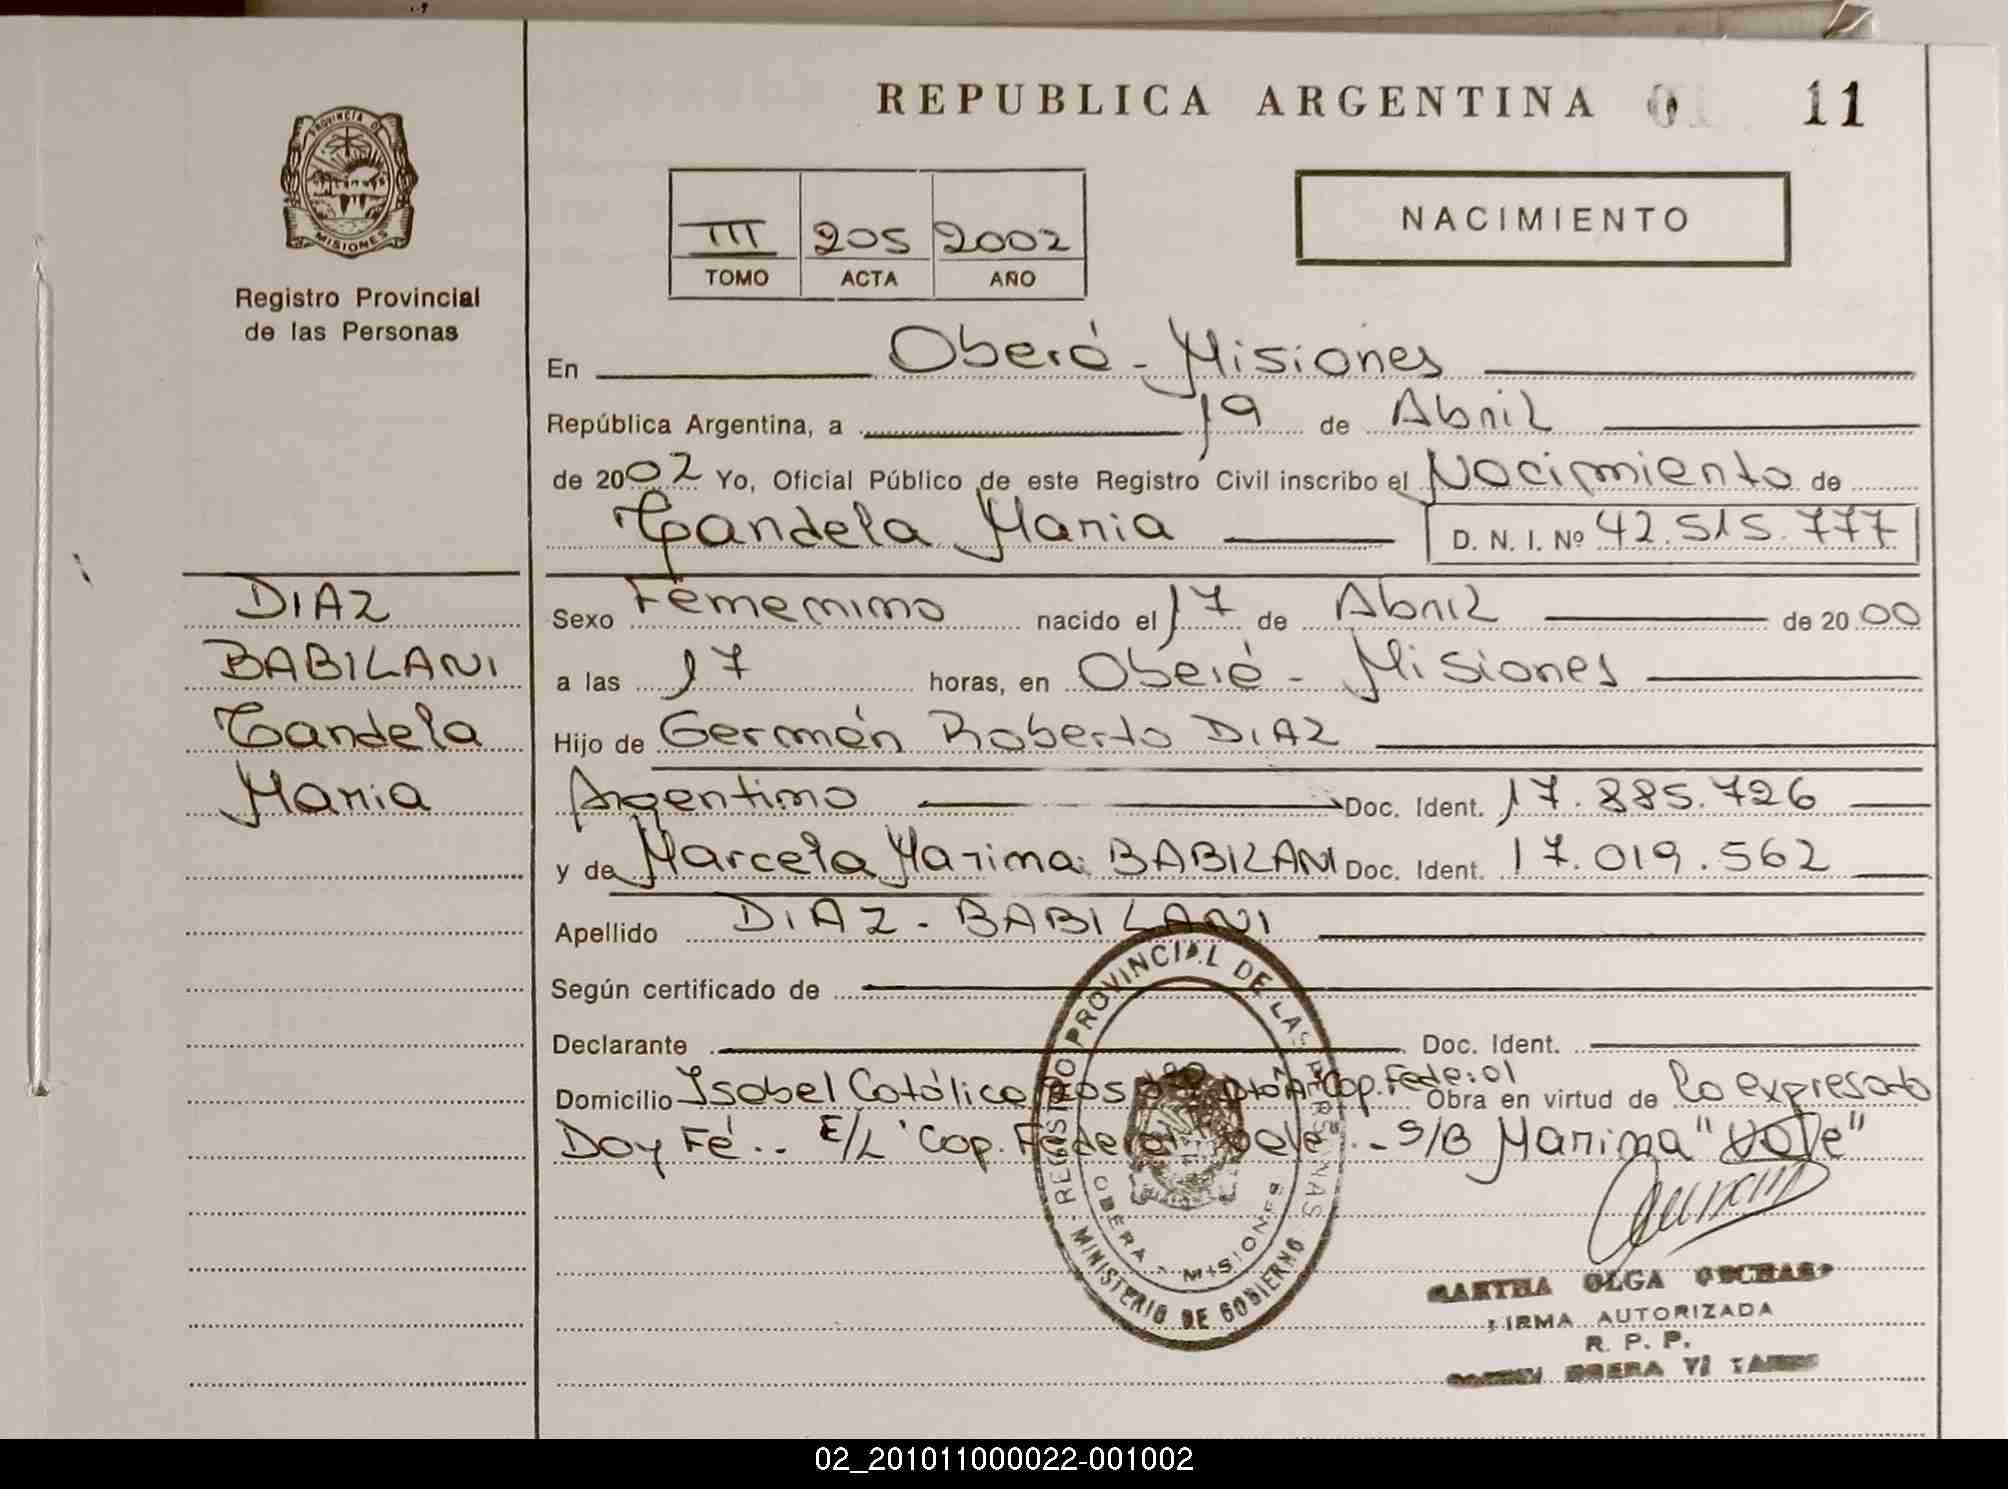 REPUBLICA ARGENTINA
11
PROVINCIA DE
MISIONES
Registro Provincial
de las Personas
III 205 2002
TOMO ACTA AÑO
NACIMIENTO
En Oberá - Misiones
República Argentina, a 19 de Abril
de 2002 Yo, Oficial Público de este Registro Civil inscribo el Nacimiento de
Candela Maria D. N. I. Nº 42.515.777
DIAZ
BABILANI
Candela
Maria
Sexo Femenino nacido el 17 de Abril de 2000
a las 17 horas, en Oberá - Misiones
Hijo de Germán Roberto DIAZ
Argentino Doc. Ident. 17.885.726
y de Marcela Marina BABILANI Doc. Ident. 17.019.562
Apellido DIAZ - BABILANI
Según certificado de
Declarante Doc. Ident.
Domicilio Isabel Católica Cap. Federal Obra en virtud de lo expresado
Doy Fé.. E/L Cap. Federal - S/B Marina "Vale"
REGISTRO PROVINCIAL DE LAS PERSONAS
OBERA - MISIONES
MINISTERIO DE GOBIERNO
OLGA
FIRMA AUTORIZADA
R. P. P.
02_201011000022-001002